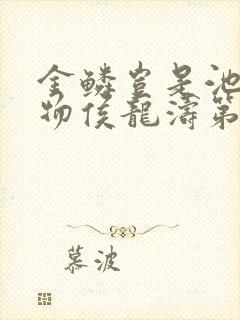 金鳞岂是池
物侯龍濤第
慕波